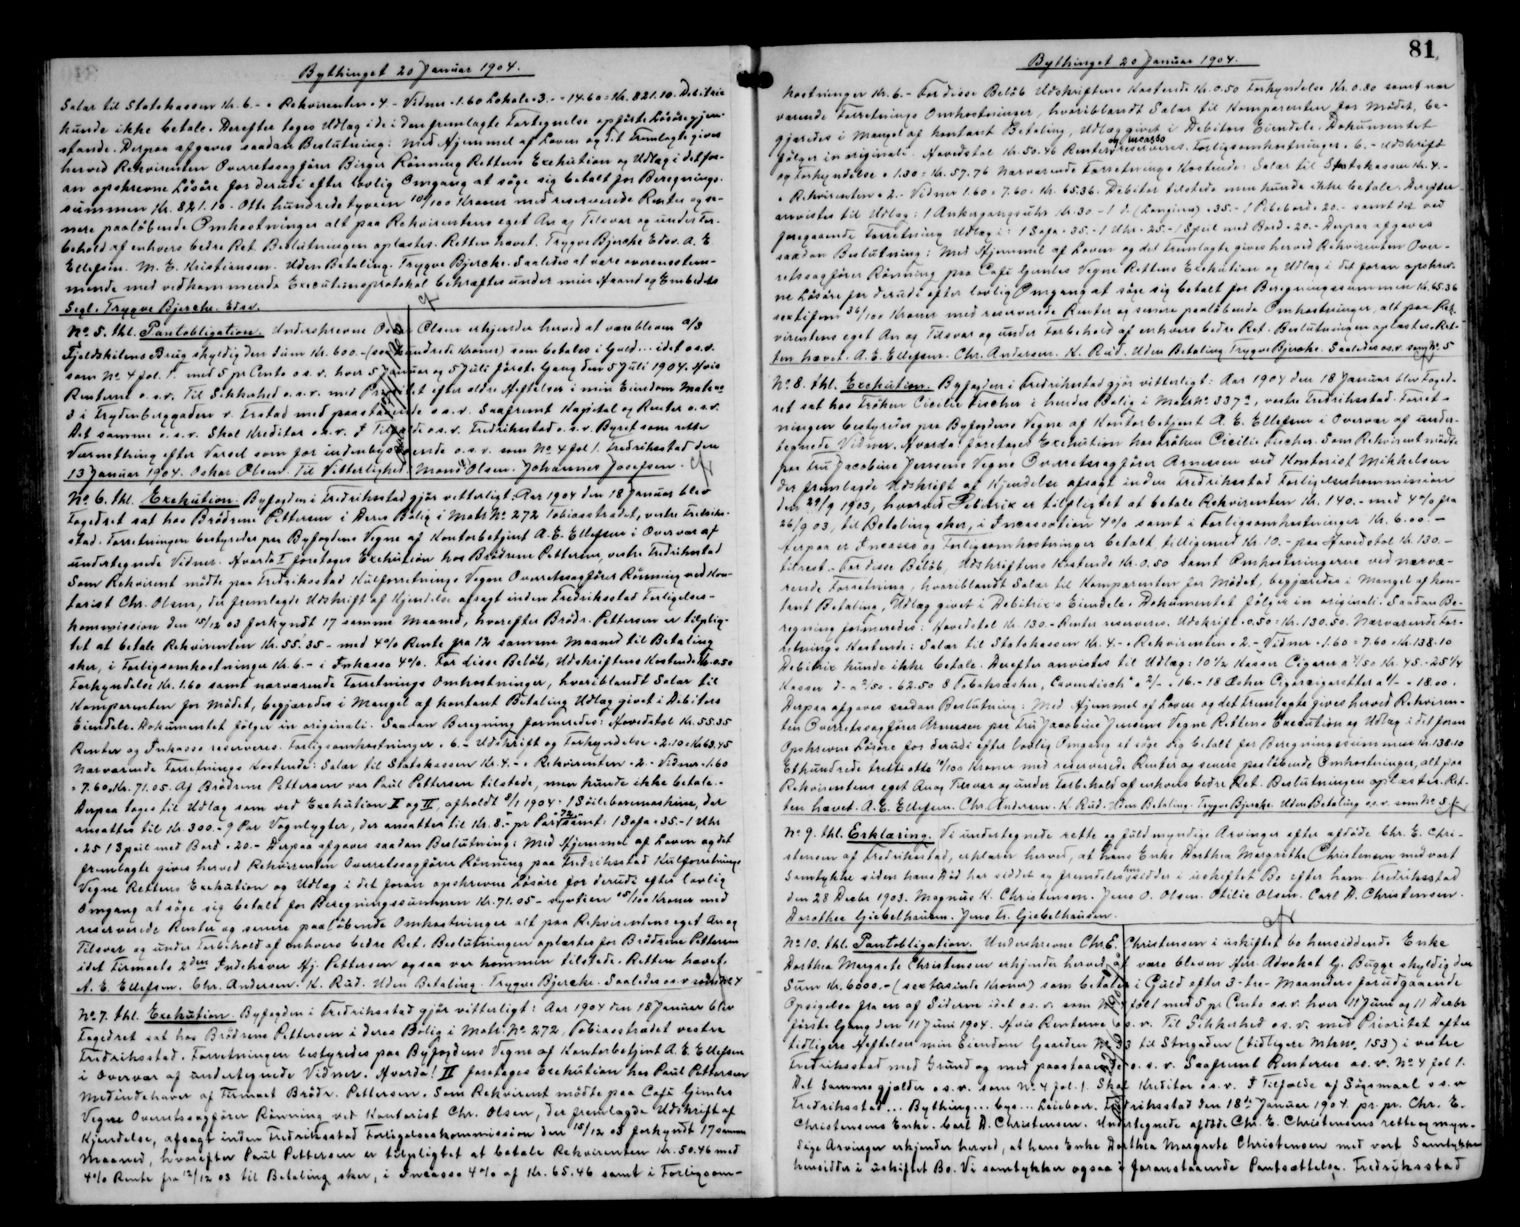 Bythinget 20 Januar 1904.
Salær til Statskassen Kr. 6.- " Rekvirenten " 4 - Vidner " 1.60 Lokale " 3. - " 14.60 = Kr. 821.10. Debitrix
kunde ikke betale. Derefter toges Udlæg i de i den fremlagte Fortegnelse opførte Løsøregjen-
stande. Derpaa afgaves saadan Beslutning: Med Hjemmel af Loven og det Fremlagte gives
herved Rekvirenten Overretssagfører Birger Rönning Rettens Exekution og Udlæg i det for-
an opskrevne Løsøre for derudi efter lovlig Omgang at søge sig betalt for Beregnings-
summen Kr. 821.10. Otte hundredetyveén 10/100 Kroner med reserverede Renter og se-
nere paaløbende Omkostninger alt paa Rekvirentens eget An og Tilsvar og under For-
behold af enhvers bedre Ret. Beslutningen oplæstes. Retten hævet. Trygve Bjercke Edsv. A. E
Ellefsen. M. E. Kristiansen. Uden Betaling. Trygve Bjercke. Saaledes at være overensstem-
mende med vedkommende Executionsprotokol bekræftes under min Haand og Embeds
Segl. Trygve Bjercke. Edsv.
No. 5. thl. Pantobligation. Underskrevne Oskar Olsen erkjender herved at være bleven a/s
Fjeldskilens Brug skyldig den Sum Kr. 600.- (sex hundrede Kroner) som betales i Guld ... idet o.s.v.
som No 4 fol. 1. med 5 pr Cento o s. v. hver 5 Januar og 5 Juli første Gang den 5 Juli 1904. Hvis
Renterne o. s. v. Til Sikkerhed o.s.v. med Prioritet efter ældre Heftelser i min Eiendom Matr no
d i Trydenberggaden v. Frstad med paastaaende o s. v. Saafremt Kapital og Renter o.s.v.
Det samme o. s. v. Skal Kreditor o.s.v. I Tilfælde o.s.v. Fredriksstad o. s. v. Byret som rette
Værnething efter Varsel som for indenbysboende o.s.v. som No 4 fol 1. Fredriksstad den
13 Januar 1904. Oskar Olsen. Til Vitterlighed: Mons Olsen. Johannes Josefsen.
No 6. thl. Exekution. Byfogden i Fredriksstad gjør vitterligt: Aar 1904 den 18 Januar blev
Fogedret sat hos Brødrene Pettersen i Deres Bolig i Matr No 272 Tobiasstrædet, vestre Fredriks-
stad. Forretningen bestyredes paa Byfogdens Vegne af Kontorbetjent A. E. Ellefsen i Overvær af
undertegnede Vidner. Hvorda! I foretages Exekution hos Brødrene Pettersen, vestre Fredriksstad
Som Rekvirent mødte paa Fredriksstad Kulforretnings Vegne Overretssagfører Rönning ved Kon-
torist Chr. Olsen, der fremlagde Udskrift af Kjendelse afsagt inden Fredriksstad Forligelses-
kommission den 15/12 03 forkyndt 17 samme Maaned, hvorefter Brødr. Pettersen er tilplig-
tet at betale Rekvirenten Kr. 55.35 - med 4% Rente fra 12 samme Maaned til Betaling
sker, i Forligsomkostninger Kr. 6.- i Inkasso 4%. For disse Beløb, Udskriftens Kostende Kr 0.50
Forkyndelse Kr. 1.60 samt nærværende Forretnings Omkostninger, hvoriblandt Salær til
Komparenten for Mødet, begjæredes i Mangel af kontant Betaling Udlæg givet i Debitors
Eiendele. Dokumentet følger in originali. Saadan Beregning formeredes: Hovedstol Kr. 55.35
Renter og Inkasso reserveres. Forligsomkostninger " 6. - Udskrift og Forkyndelse " 2.10 = Kr 63.45
Nærværende Forretnings Kostende: Salær til Statskassen Kr. 4. - " Rekvirenten " 2 - Vidner " 1.60
= 7.60 = Kr. 71.05. Af Brødrene Pettersen var Paul Pettersen tilstede, men kunde ikke betale. -
Derpaa toges til Udlæg som ved Exekution II og III, afholdt d/1 1904. 1 Søileboremaskine, der
ansattes til Kr. 300.- 9 Par Vognlygter, der ansattes til Kr. 8.- pr Par = 72 samt: 1 Sofa " 35. - 1 Uhr
" 25 1 Speil med Bord " 20. - Derpaa afgaves saadan Beslutning: Med Hjemmel af Loven og det
fremlagte gives herved Rekvirenten Overretssagfører Rönning paa Fredriksstad Kulforretnings
Vegne Rettens Exekution og Udlæg i det foran opskrevne Løsøre for derudi efter lovlig
Omgang at søge sig betalt for Beregningssummen Kr. 71.05 - syttien 05/100 Kroner med
reserverede Renter og senere paaløbende Omkostninger alt paa Rekvirentens eget An og
Tilsvar og under Forbehold af enhvers bedre Ret. Beslutningen oplæstes for Brødrene Pettersen
idet Firmaets 2den Indehaver Hj. Pettersen ogsaa var kommen tilstede. Retten hævet.
A. E. Ellefsen. Chr. Andersen. K. Rud. Uden Betaling. Trygve Bjercke. Saaledes o s v som No 4
No. 7. thl. Exekution. Byfogden i Fredriksstad gjør vitterligt: Aar 1904 den 18 Januar blev
Fogedret sat hos Brødrene Pettersen i Deres Bolig i Matr. No 272, Tobiasstrædet vestre
Fredriksstad. Forretningen bestyredes paa Byfogdens Vegne af Kontorbetjent A. E. Ellefsen
i Overvær af undertegnede Vidner. Hvorda! II foretages Exekution hos Paul Pettersen
Medindehaver af Firmaet Brødr. Pettersen. Som Rekvirent mødte paa Café Gimles
Vegne Overretssagfører Rönning ved Kontorist Chr. Olsen, der fremlagde Udskrift af
Kjendelse, afsagt inden Fredriksstad Forligelseskommission den 15/12 03 forkyndt 17 samme
Maaned, hvorefter Paul Pettersen er tilpligtet at betale Rekvirenten Kr. 50.46 med
4% Rente fra 12/12 03 til Betaling sker, i Incasso 4% af Kr. 65.46 samt i Forligsom-
81
Bythinget 20 Januar 1904.
kostninger Kr. 6. - For disse Beløb Udskriftens Kostende Kr. 0.50 Forkyndelse Kr. 0.80 samt nær
værende Forretnings Omkostninger, hvoriblandt Salær til Komparenten for Mødet, be-
gjæredes i Mangel af kontant Betaling, Udlæg givet i Debitors Eiendele. Dokumentet
følger in originali. Hovedstol Kr. 50.46 Renter og Incasso reserveres. Forligsomkostninger " 6. - Udskrift
og Forkyndelse " 1.30 = Kr. 57.76 Nærværende Forretnings Kostende: Salær til Statskassen Kr. 4. -
" Rekvirenten " 2 - Vidner 1.60 = 7.60 = Kr. 65.36. Debitor tilstede men kunde ikke betale. Derefter
anvistes til Udlæg: 1 Ankergangsuhr Kr. 30 - 1 d. (Longines) " 35. - 1 Pibebord " 20. - samt det ved
foregaaende Forretning Udlæg i: 1 Sofa " 35. - 1 Uhr " 25. - 1 Speil med Bord " 20. - Derpaa afgaves
saadan Beslutning: Med Hjemmel af Loven og det fremlagte gives herved Rekvirenten Over-
retssagfører Rönning paa Café Gimles Vegne Rettens Exekution og Udlæg i det foran opskrev-
ne Løsøre for derudi efter lovlig Omgang at søge sig betalt for Beregningssummen Kr. 65.36
sextifem 36/100 Kroner med reserverede Renter og senere paaløbende Omkostninger, alt paa Rek-
virentens eget An og Tilsvar og under Forbehold af enhvers bedre Ret. Beslutningen oplæstes. Ret-
ten hævet. A. E. Ellefsen. Chr. Andersen. K. Rud. Uden Betaling. Trygve Bjercke. Saaledes o.s.v. som No. 5
No. 8. thl. Exekution. Byfogden i Fredriksstad gjør vitterligt: Aar 1904 den 18 Januar blev Foged-
ret sat hos Frøken Cicilie Fischer i hendes Bolig i Matr No. 337a, vestre Fredriksstad. Forret-
ningen bestyredes paa Byfogdens Vegne af Kontorbetjent A. E. Ellefsen i Overvær af under-
tegnede Vidner. Hvorda! foretages Exekution hos Frøken Cicilie Fischer. Som Rekvirent mødte
paa Fru Jacobine Jensens Vegne Overretssagfører Arnesen ved Kontorist Mikkelsen
der fremlagde Udskrift af Kjendelse afsagt inden Fredriksstad Forligelseskommission
den 29/9 1903, hvorved Debitrix er tilpligtet at betale Rekvirenten Kr. 140. - med 4% fra
26/9 03, til Betaling sker, i Incassation 4% samt i Forligsomkostninger Kr. 6.00. -
herpaa er Incasso og Forligsomkostninger betalt tilligemed Kr. 10. - paa Hovedstol Kr. 130. -
tilrest. For disse Beløb, Udskriftens Kostende Kr. 0.50 samt Omkostningerne ved nærvæ-
rende Forretning, hvoriblandt Salær til Komparenten for Mødet, begjæredes i Mangel af kon-
tant Betaling, Udlæg givet i Debitrix's Eiendele. Dokumentet følger in originali. Saadan Be-
regning formeredes: Hovedstol Kr. 130. - Renter reserveres. Udskrift " 0.50 = Kr. 130.50. Nærværende For-
retnings Kostende: Salær til Statskassen Kr. 4. - " Rekvirenten " 2. - Vidner " 1.60 = 7.60 = Kr. 138.10
Debitrix kunde ikke betale. Derefter anvistes til Udlæg: 10 1/2 Kasser Cigarer a 4/50 Kr. 45. - 25 1/4
Kasser d- a 2/50 " 62.50 8 Tobaksæsker, "Cavendisch" a 2/- " 16. - 18 Æsker Cigarcigaretter a 1/- " 18.00.
Derpaa afgaves saadan Beslutning: Med Hjemmel af Loven og det fremlagte gives herved Rekviren-
ten Overretssagfører Arnesen paa Fru Jacobine Jensens Vegne Rettens Exekution og Udlæg i det foran
Opskrevne Løsøre for derudi efter lovlig Omgang at søge sig betalt for Beregningssummen Kr. 138.10
Ethundrede tretti otte 10/100 Kroner med reserverede Renter og senere paaløbende Omkostninger, alt paa
Rekvirentens eget An og Tilsvar og under Forbehold af enhvers bedre Ret. Beslutningen oplæstes. Ret-
ten hævet. A. E. Ellefsen. Chr. Andersen. K. Rud. Uden Betaling. Trygve Bjercke. Uden Betaling o.s.v. som No 5
No 9. thl. Erklæring. Vi undertegnede rette og fuldmyndige Arvinger efter afdøde Chr. E. Chri-
stensen af Fredriksstad, erklærer herved, at hans Enke Dorthea Margrethe Christensen med vort
Samtykke siden hans Død har siddet og fremdeles hensidder i uskiftet Bo efter ham. Fredriksstad
den 28 Decbr 1903. Magnus K. Christensen. Jens O. Olsen. Otilie Olsen. Carl A. Christensen.
Dorothea Giebelhausen. Jens Fr. Giebelhausen.
No 10. thl. Pantobligation. Underskrevne Chr. E. Christensen i uskiftet bo hensiddende Enke
Dorthea Margrete Christensen erkjender herved at være bleven Hr. Advokat G. Bugge skyldig den
Sum Kr. 6000. - (sextusinde Kroner) som betales i Guld efter 3 - tre - Maaneders forudgaaende
Opsigelse fra en af Siderne idet os. v. som No 4 fol 1 med 5 pr Cento os. v. hver 11 Juni og 11 Decbr
første Gang den 11 Juni 1904. Hvis Renterne o s. v. Til Sikkerhed o s. v. med Prioritet efter
tidligere Heftelser min Eiendom Gaarden No 3 til Storgaden (tidligere Mtr. no. 153) i vestre
Fredriksstad med Grund og med paastaaende o. s. v. Saafremt Renterne o.s. v. No 4 fol 1.
Det Samme gjælder o s. v. som No. 4 fol. 1. Skal Kreditor o s. v. I Tilfælde af Søgsmaal o s. v
Fredriksstad ... Bything ... bys ... Leieboer. Fredriksstad den 18de Januar 1904. pr. pr. Chr. E.
Christensens Enke. Carl A. Christensen. Undertegnede afdøde Chr. E. Christensens rette og myn-
dige Arvinger erkjender herved, at hans Enke Dorthea Margrete Christensen med vort Samtykke
hensidder i uskiftet Bo. Vi samtykker ogsaa i foranstaaende Pantsættelse. Fredriksstad